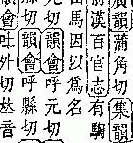 韻蒲角切集韻
前漢百官志有
馬因以爲名
切韻會呼元切
元切韻會呼縣切
會吐外切𠀤音